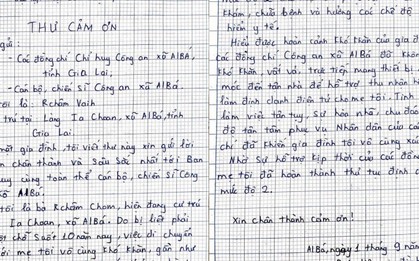 THƯ CẢM ƠN
gửi:
- Các đồng chí Chỉ huy Công an xã AlBá,
tỉnh Gia Lai,
- Cán bộ, chiến sĩ Công an xã AlBá.
tôi là: Rchăm Vaih
trú tại Làng Ia Choan, xã AlBá, tỉnh
Gia Lai.
mặt gia đình, tôi viết thư này xin gửi lời
ơn chân thành và sâu sắc nhất tới Ban
huy cùng toàn thể cán bộ, chiến sĩ Công
xã AlBá.
tôi là bà Rchăm Chom, hiện đang cư trú
Ia Choan, xã AlBá. Do bị liệt phải
một chỗ suốt 10 năm nay, việc di chuyển
với mẹ tôi vô cùng khó khăn, gần như
khám, chữa bệnh và hưởng các chế độ
hiểm y tế.
Hiểu được hoàn cảnh khó khăn của gia đ
các đồng chí Công an xã AlBá đã không
khó khăn vất vả, trực tiếp mang thiết bị,
móc đến tận nhà để hỗ trợ thu nhận hồ
làm định danh điện tử cho mẹ tôi. Tinh
làm việc tận tụy, sự hòa nhã, chu đáo
độ tận tâm phục vụ Nhân dân của các
chí đã khiến gia đình tôi vô cùng xúc
Nhờ sự hỗ trợ kịp thời của các đồng
mẹ tôi đã hoàn thành thủ tục định d
mức độ 2.
Xin chân thành cảm ơn!
AlBá, ngày 1 tháng 9 năm